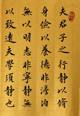 夫君子之行靜以修
身儉以養德非澹泊
無以明志非寧靜無
以致遠夫學須靜也